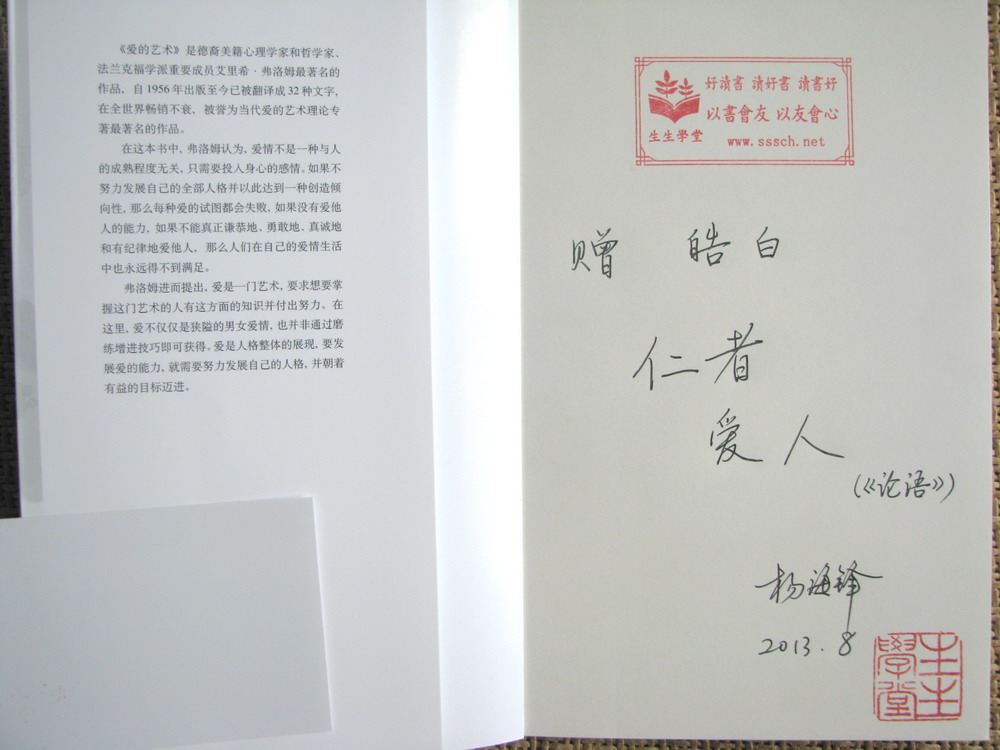 《爱的艺术》是德裔美籍心理学家和哲学家、
法兰克福学派重要成员艾里希·弗洛姆最著名的
作品，自1956年出版至今已被翻译成32种文字，
在全世界畅销不衰，被誉为当代爱的艺术理论专
著最著名的作品。
在这本书中，弗洛姆认为，爱情不是一种与人
的成熟程度无关，只需要投入身心的感情。如果不
努力发展自己的全部人格并以此达到一种创造倾
向性，那么每种爱的试图都会失败，如果没有爱他
人的能力，如果不能真正谦恭地、勇敢地、真诚地
和有纪律地爱他人，那么人们在自己的爱情生活
中也永远得不到满足。
弗洛姆进而提出，爱是一门艺术，要求想要掌
握这门艺术的人有这方面的知识并付出努力。在
这里，爱不仅仅是狭隘的男女爱情，也并非通过磨
练增进技巧即可获得。爱是人格整体的展现，要发
展爱的能力，就需要努力发展自己的人格，并朝着
有益的目标迈进。
好讀書 讀好書 讀書好
以書會友 以友會心
生生學堂
www.sssch.net
赠 皓白
仁者
爱人
(《论语》)
杨海锋
2013.8
生生
學堂